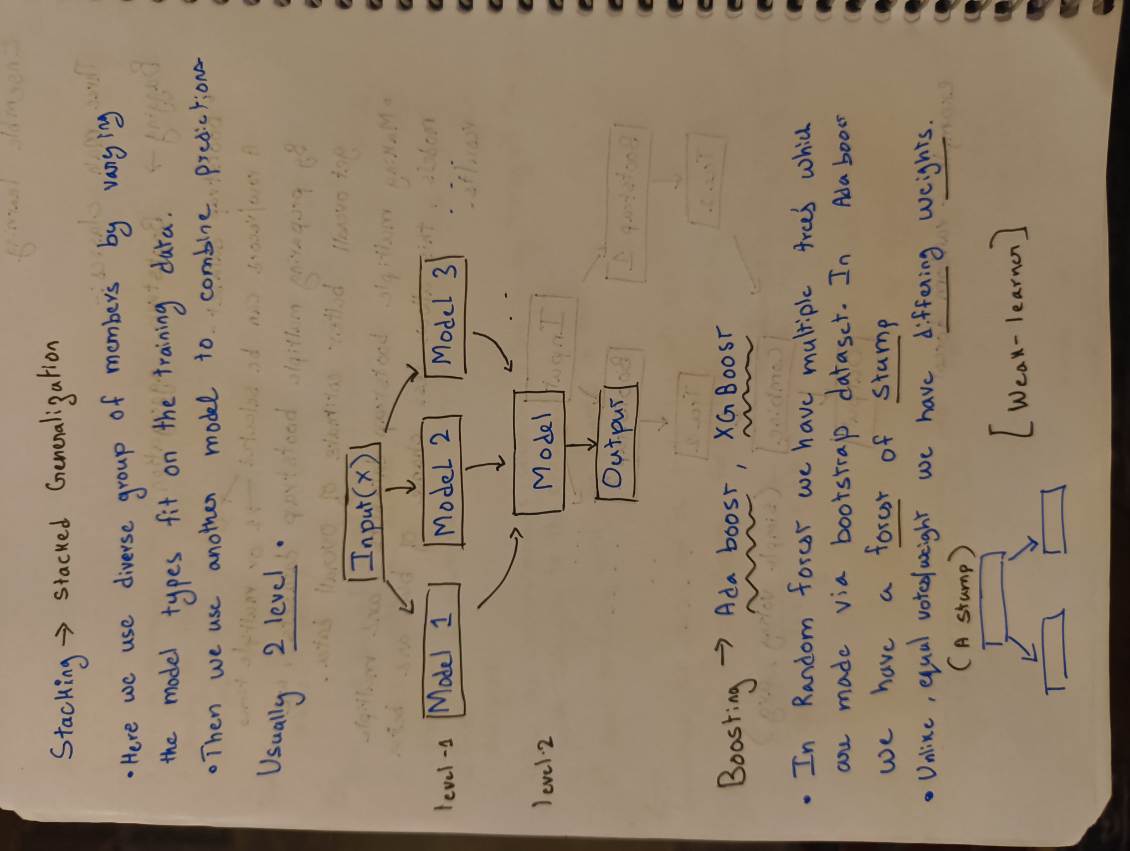 Stacking → Stacked Generalization
• Here we use diverse group of members by varying
the model types fit on the training data.
• Then we use another model to combine predictions
Usually 2 level.
Input(X)
level-1 Model 1 Model 2 Model 3 ....
..
level-2 Model
Output
Boosting → Ada boost, XG Boost
• In Random forest we have multiple trees which
are made via bootstrap dataset. In Ada boost
we have a forest of stump
• Unlike, equal votes/weight we have differing weights.
(A stump)
[Weak-learner]